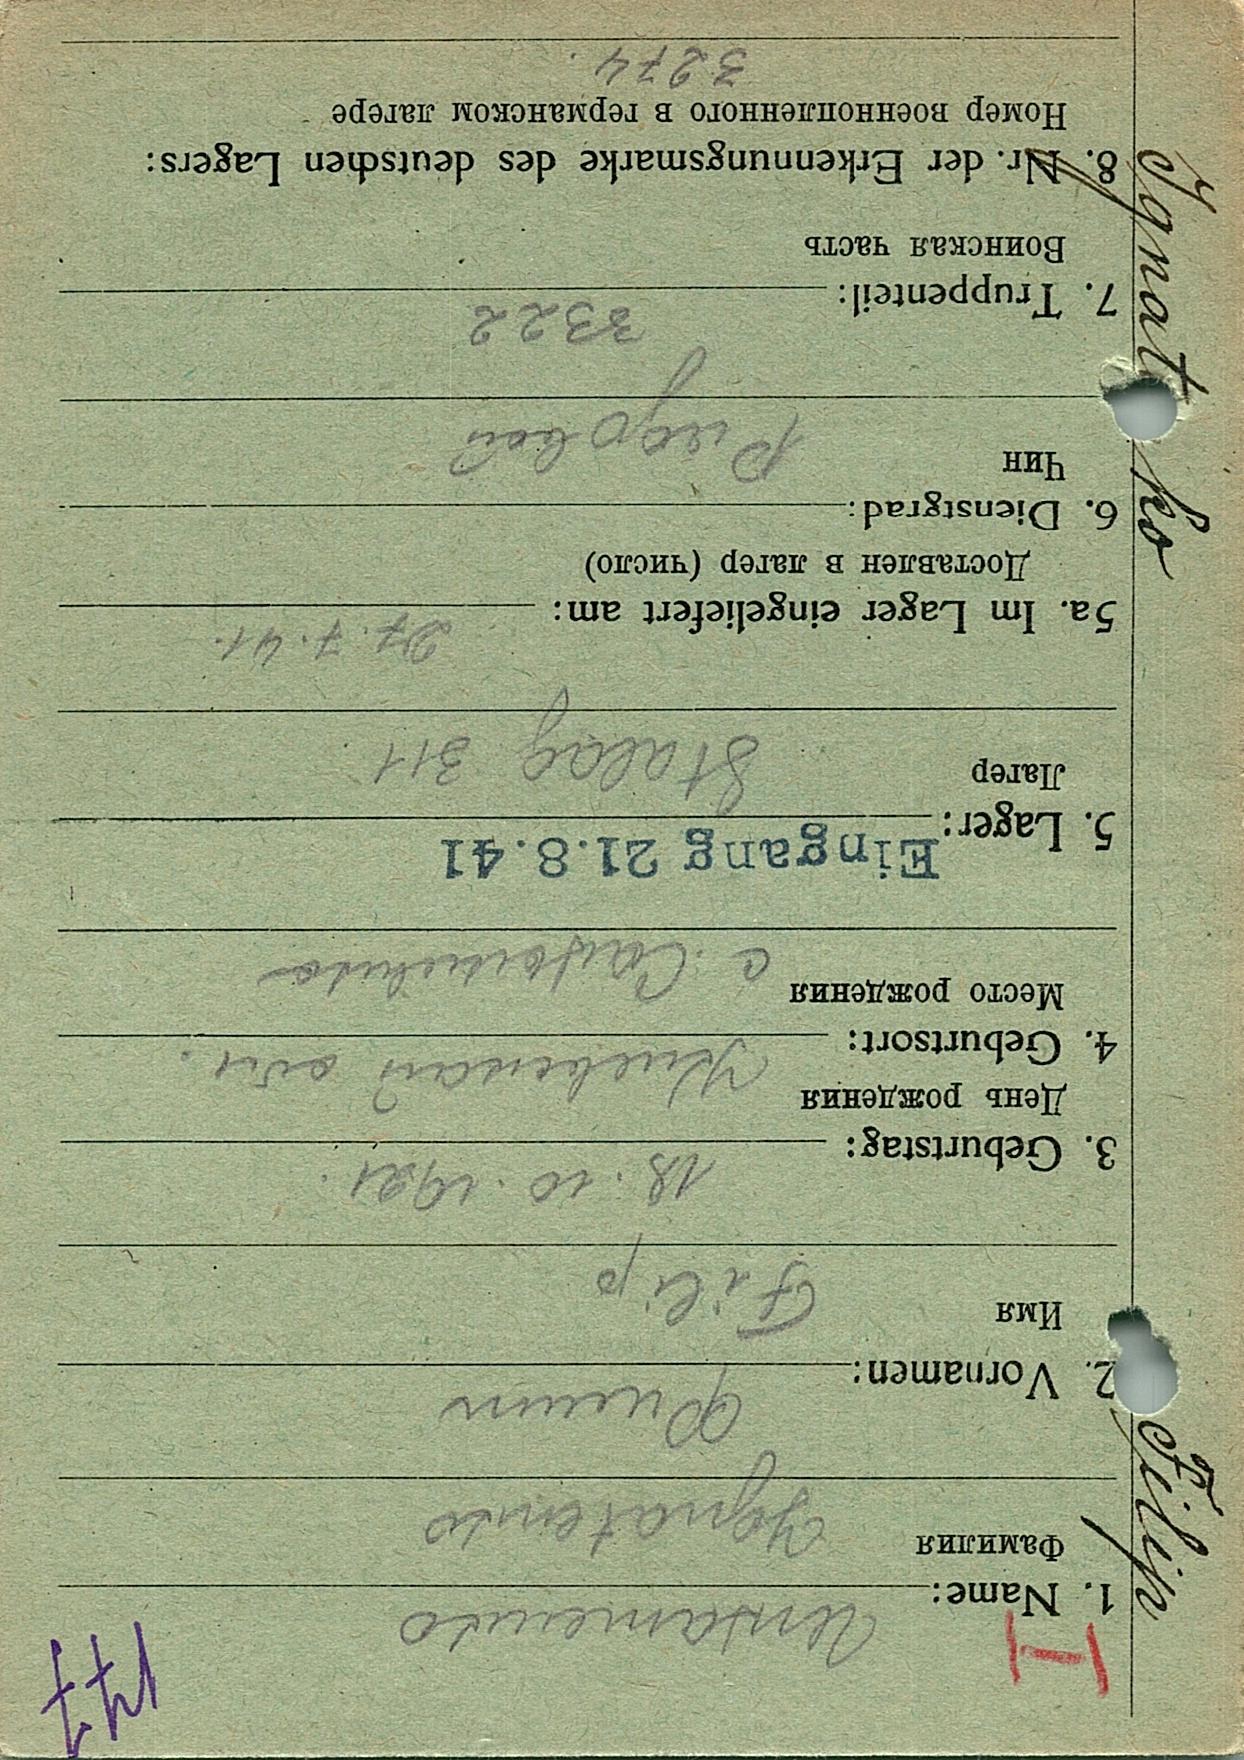 147
I
Игнатенко
1. Name:
Фамилия
Ignatenko
Филип
2. Vornamen:
Имя
Filip
18.10.1921.
3. Geburtstag:
День рождения
Киевской обл.
4. Geburtsort:
Место рождения
Eingang 21.8.41
5. Lager:
Лагер
Stalag 311
27.7.41.
5a. Im Lager eingeliefert am:
Доставлен в лагер (число)
6. Dienstgrad:
Чин
Рядовой
3322
7. Truppenteil:
Воинская часть
8. Nr. der Erkennungsmarke des deutschen Lagers:
Номер военнопленного в германском лагере
3274.
Filip
Ignatenko